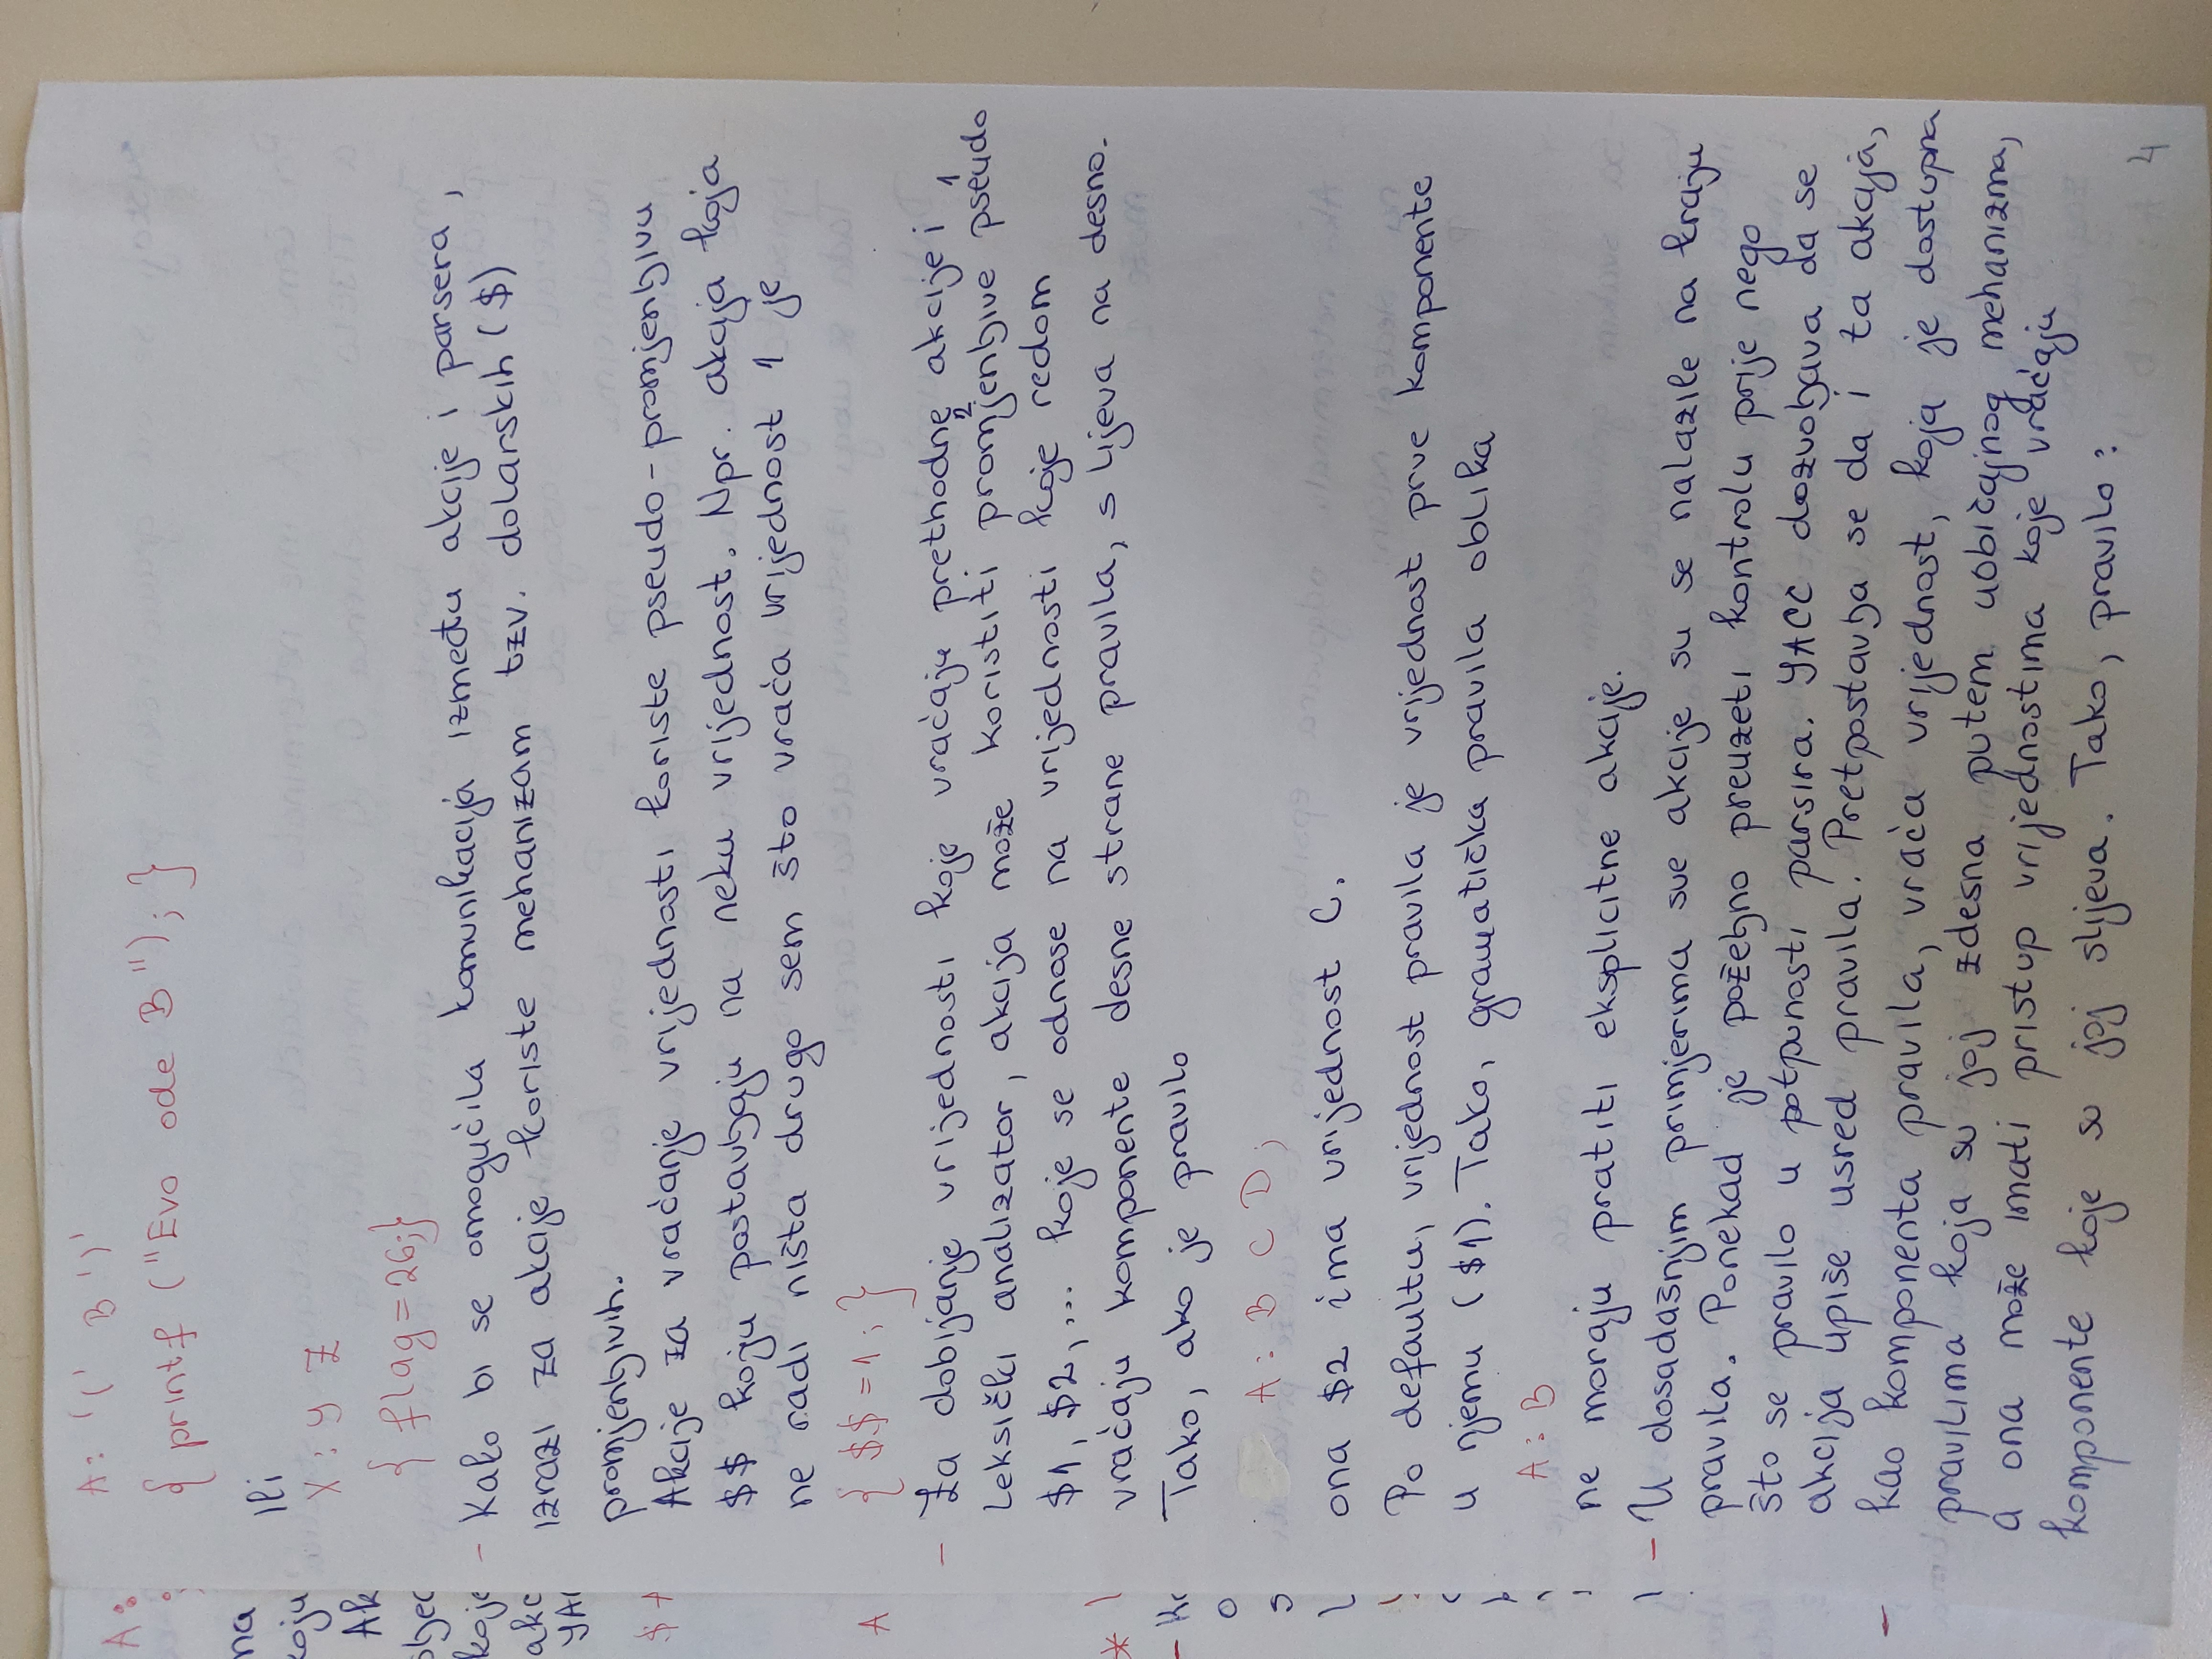 A: '(' B ')'
{ printf ("Evo ode B"); }
Ili
X : Y Z
{ flag = 26; }
- Kako bi se omogućila komunikacija između akcije i parsera,
izrazi za akcije koriste mehanizam tzv. dolarskih ($)
promjenljivih.
Akcije za vraćanje vrijednosti koriste pseudo-promjenljivu
$$ koju postavljaju na neku vrijednost. Npr. akcija koja
ne radi ništa drugo sem što vraća vrijednost 1 je
{ $$ = 1 ; }
- Za dobijanje vrijednosti koje vraćaju prethodne akcije i
leksički analizator, akcija može koristiti 2 promjenljive 1 pseudo
$1, $2, ... koje se odnose na vrijednosti koje redom
vraćaju komponente desne strane pravila, s lijeva na desno.
Tako, ako je pravilo
A : B C D ;
ona $2 ima vrijednost C.
Po defaultu, vrijednost pravila je vrijednost prve komponente
u njemu ($1). Tako, gramatička pravila oblika
A : B
ne moraju pratiti eksplicitne akcije.
- U dosadašnjim primjerima sve akcije su se nalazile na kraju
pravila. Ponekad je poželjno preuzeti kontrolu prije nego
što se pravilo u potpunosti parsira. YACC dozvoljava da se
akcija upiše usred pravila. Pretpostavlja se da i ta akcija,
kao komponenta pravila, vraća vrijednost, koja je dostupna
pravilima koja su joj zdesna putem uobičajnog mehanizma,
a ona može imati pristup vrijednostima koje vraćaju
komponente koje su joj slijeva. Tako, pravilo :
4